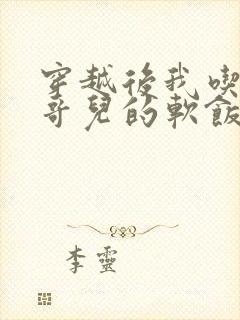 穿越後我喫
哥兒的軟飯
李靈